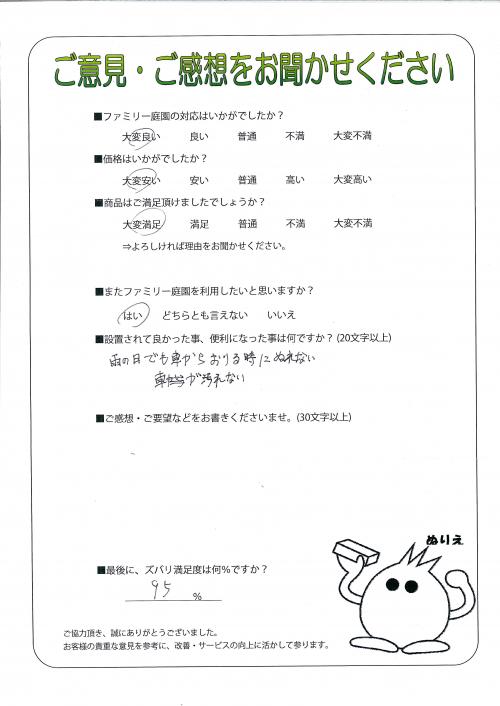 ご意見・ご感想をお聞かせください
■ファミリー庭園の対応はいかがでしたか？
大変良い　良い　普通　不満　大変不満
■価格はいかがでしたか？
大変安い　安い　普通　高い　大変高い
■商品はご満足頂けましたでしょうか？
大変満足　満足　普通　不満　大変不満
⇒よろしければ理由をお聞かせください。
■またファミリー庭園を利用したいと思いますか？
はい　どちらとも言えない　いいえ
■設置されて良かった事、便利になった事は何ですか？(20文字以上)
雨の日でも車からおりる時にぬれない
車が汚れない
■ご感想・ご要望などをお書きくださいませ。(30文字以上)
ぬりえ
■最後に、ズバリ満足度は何％ですか？
95 ％
ご協力頂き、誠にありがとうございました。
お客様の貴重な意見を参考に、改善・サービスの向上に活かして参ります。